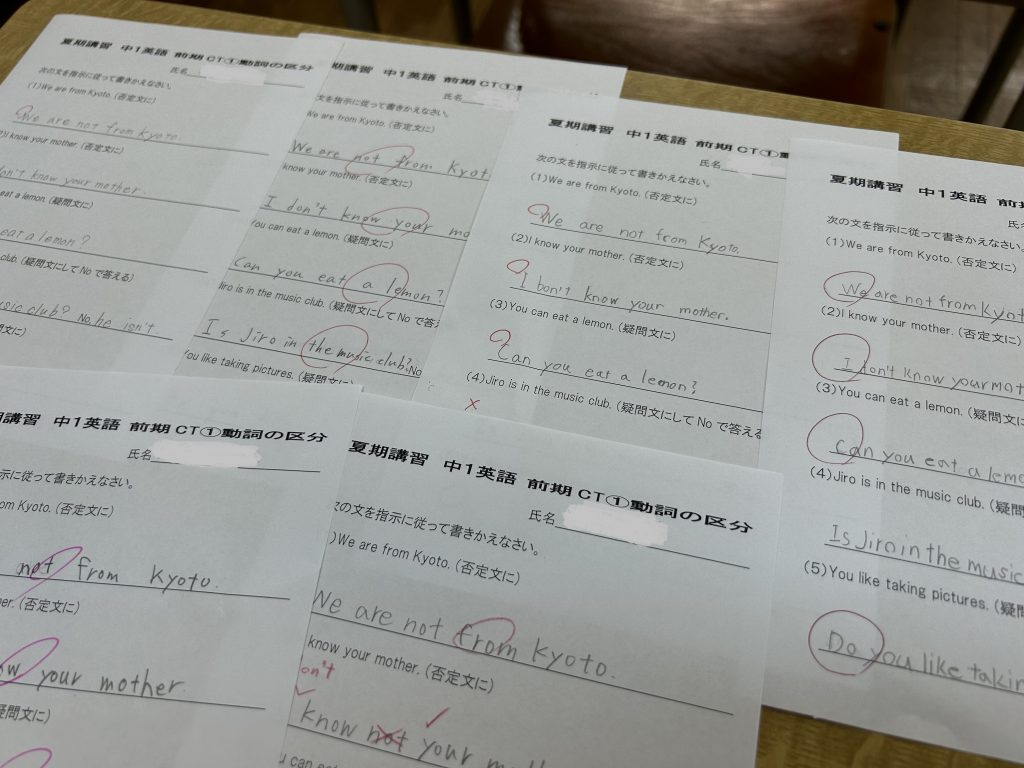 夏期講習 中1英語 前期 CT①動詞の区分
氏名
次の文を指示に従って書きかえなさい。
(1)We are from Kyoto. (否定文に)
We are not from Kyoto.
I know your mother. (否定文に)
don't know your mother.
eat a lemon. (疑問文に)
eat a lemon?
club. (疑問文にして No で答える)
music club? No, he isn't
文に)
期講習 中1英語 前期 CT①
氏名
文を指示に従って書きかえなさい。
We are from Kyoto. (否定文に)
We are not from Kyot
know your mother. (否定文に)
I don't know your mo
You can eat a lemon. (疑問文に)
Can you eat a lemon?
Jiro is in the music club. (疑問文にして No で答
Is Jiro in the music club? No
You like taking pictures. (疑問文に
夏期講習 中1英語 前期 CT①動
氏名
次の文を指示に従って書きかえなさい。
(1)We are from Kyoto. (否定文に)
We are not from Kyoto.
(2)I know your mother. (否定文に)
I bon't know your mother.
(3)You can eat a lemon. (疑問文に)
Can you eat a lemon?
(4)Jiro is in the music club. (疑問文にして No で答え
夏期講習 中1英語 前
氏
次の文を指示に従って書きかえなさい。
(1)We are from Kyoto. (否定文に)
We are not from Kyot
(2)I know your mother. (否定文に)
I don't know your mot
(3)You can eat a lemon. (疑問文に
Can you eat a lem
(4)Jiro is in the music club. (疑問
Is Jiro in the music
(5)You like taking pictures. (疑
Do you like takin
期講習 中1英語 前期 CT①動詞の区分
氏名
示に従って書きかえなさい。
om Kyoto. (否定文に)
not from Kyoto.
er. (否定文に)
ow your mother.
疑問文に)
夏期講習 中1英語 前期 CT①動詞の区分
氏名
次の文を指示に従って書きかえなさい。
)We are from Kyoto. (否定文に)
We are not from Kyoto.
know your mother. (否定文に)
on't
know not your moth
can eat